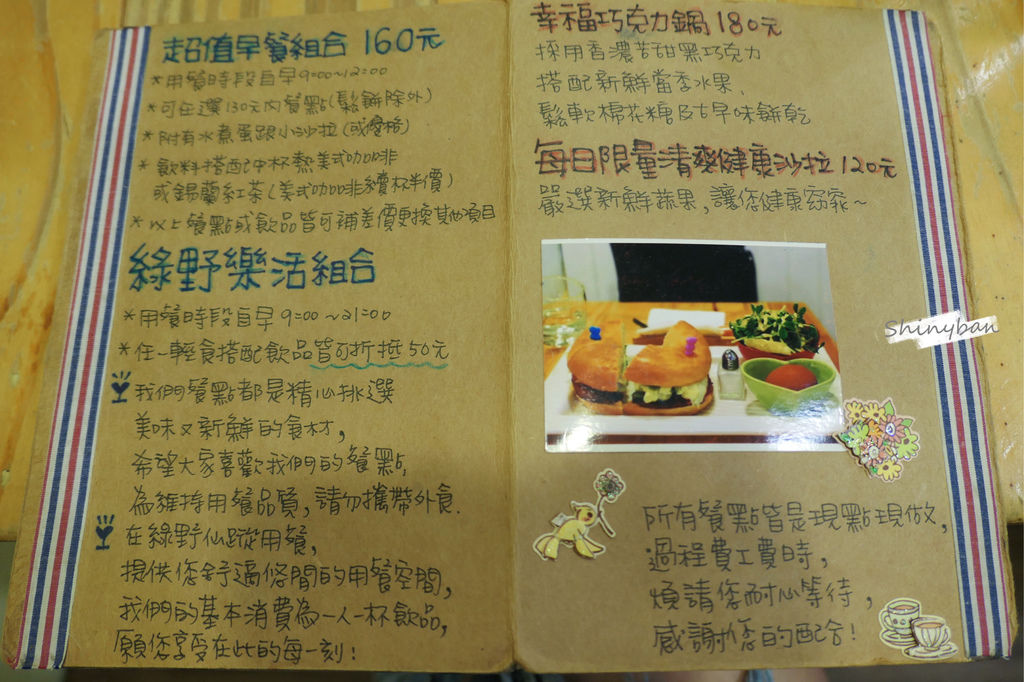 超值早餐組合 160元
*用餐時段自早9:00~12:00
*可任選130元內餐點(鬆餅除外)
*附有水煮蛋跟小沙拉(或優格)
*飲料搭配中杯熱美式咖啡
或錫蘭紅茶(美式咖啡續杯半價)
*以上餐點或飲品皆可補差價更換其他項目
綠野樂活組合
*用餐時段自早9:00~21:00
*任一輕食搭配飲品皆可折抵50元
我們餐點都是精心挑選
美味又新鮮的食材,
希望大家喜歡我們的餐點,
為維持用餐品質,請勿攜帶外食.
在綠野仙蹤用餐,
提供您舒適悠閒的用餐空間,
我們的基本消費為一人一杯飲品,
願您享受在此的每一刻!
幸福巧克力鍋180元
採用香濃苦甜黑巧克力
搭配新鮮當季水果、
鬆軟棉花糖及古早味餅乾
每日限量清爽健康沙拉120元
嚴選新鮮蔬果,讓您健康窈窕~
Shinyban
所有餐點皆是現點現做,
過程費工費時,
煩請您耐心等待,
感謝您的配合!